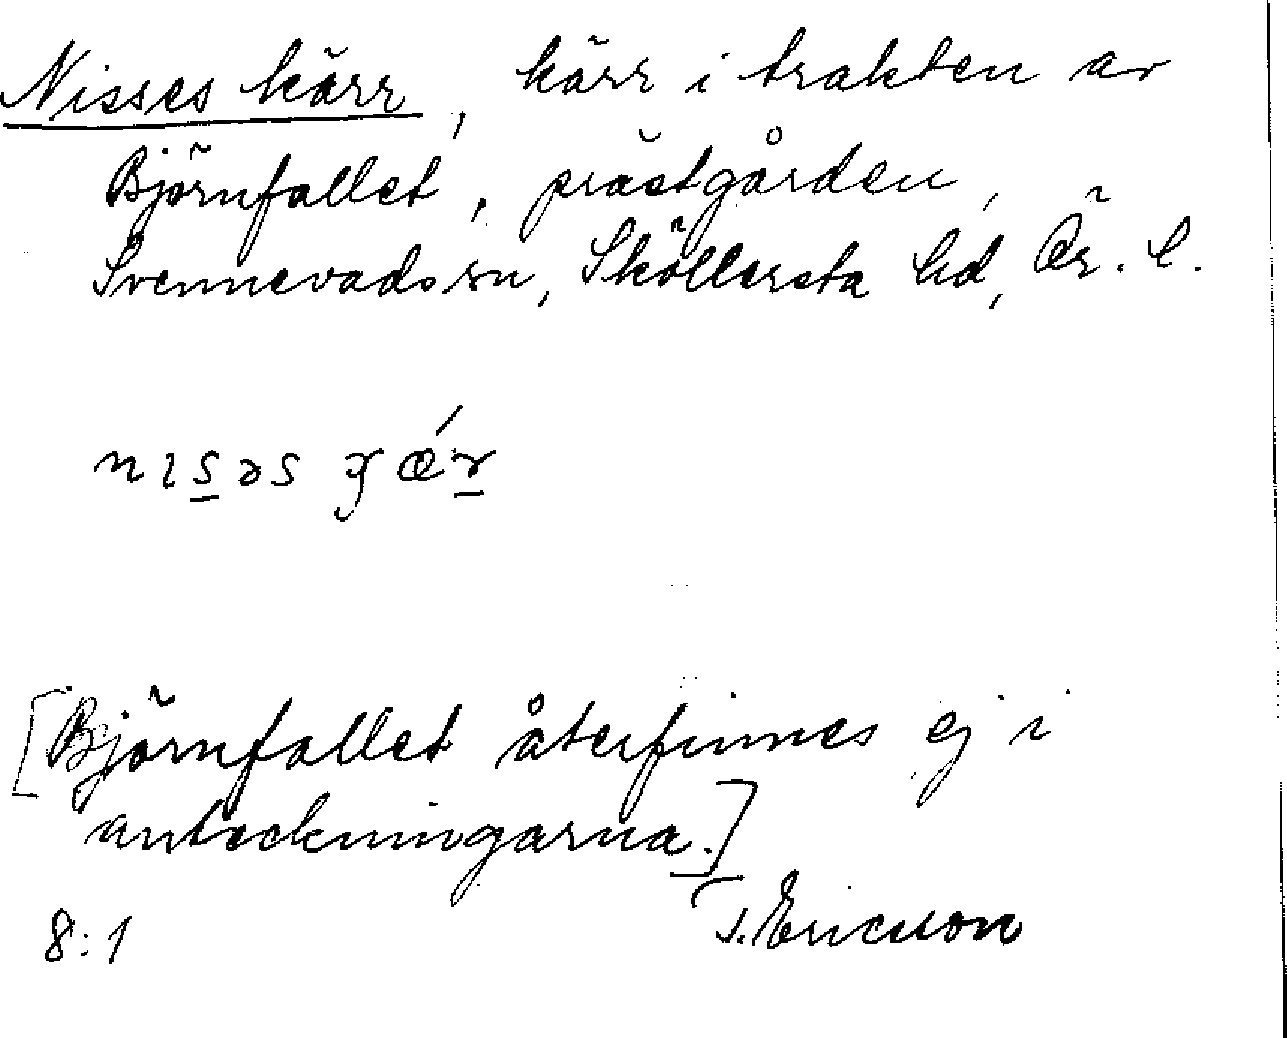 Nisses kärr, kärr i trakten av
Björnfallet, prästgården,
Svennevads sn, Sköllersta hd, Ör. l.
nɩs̲əs
[Björnfallet återfinnes ej i
anteckningarna.]
8:1
T. Ericsson